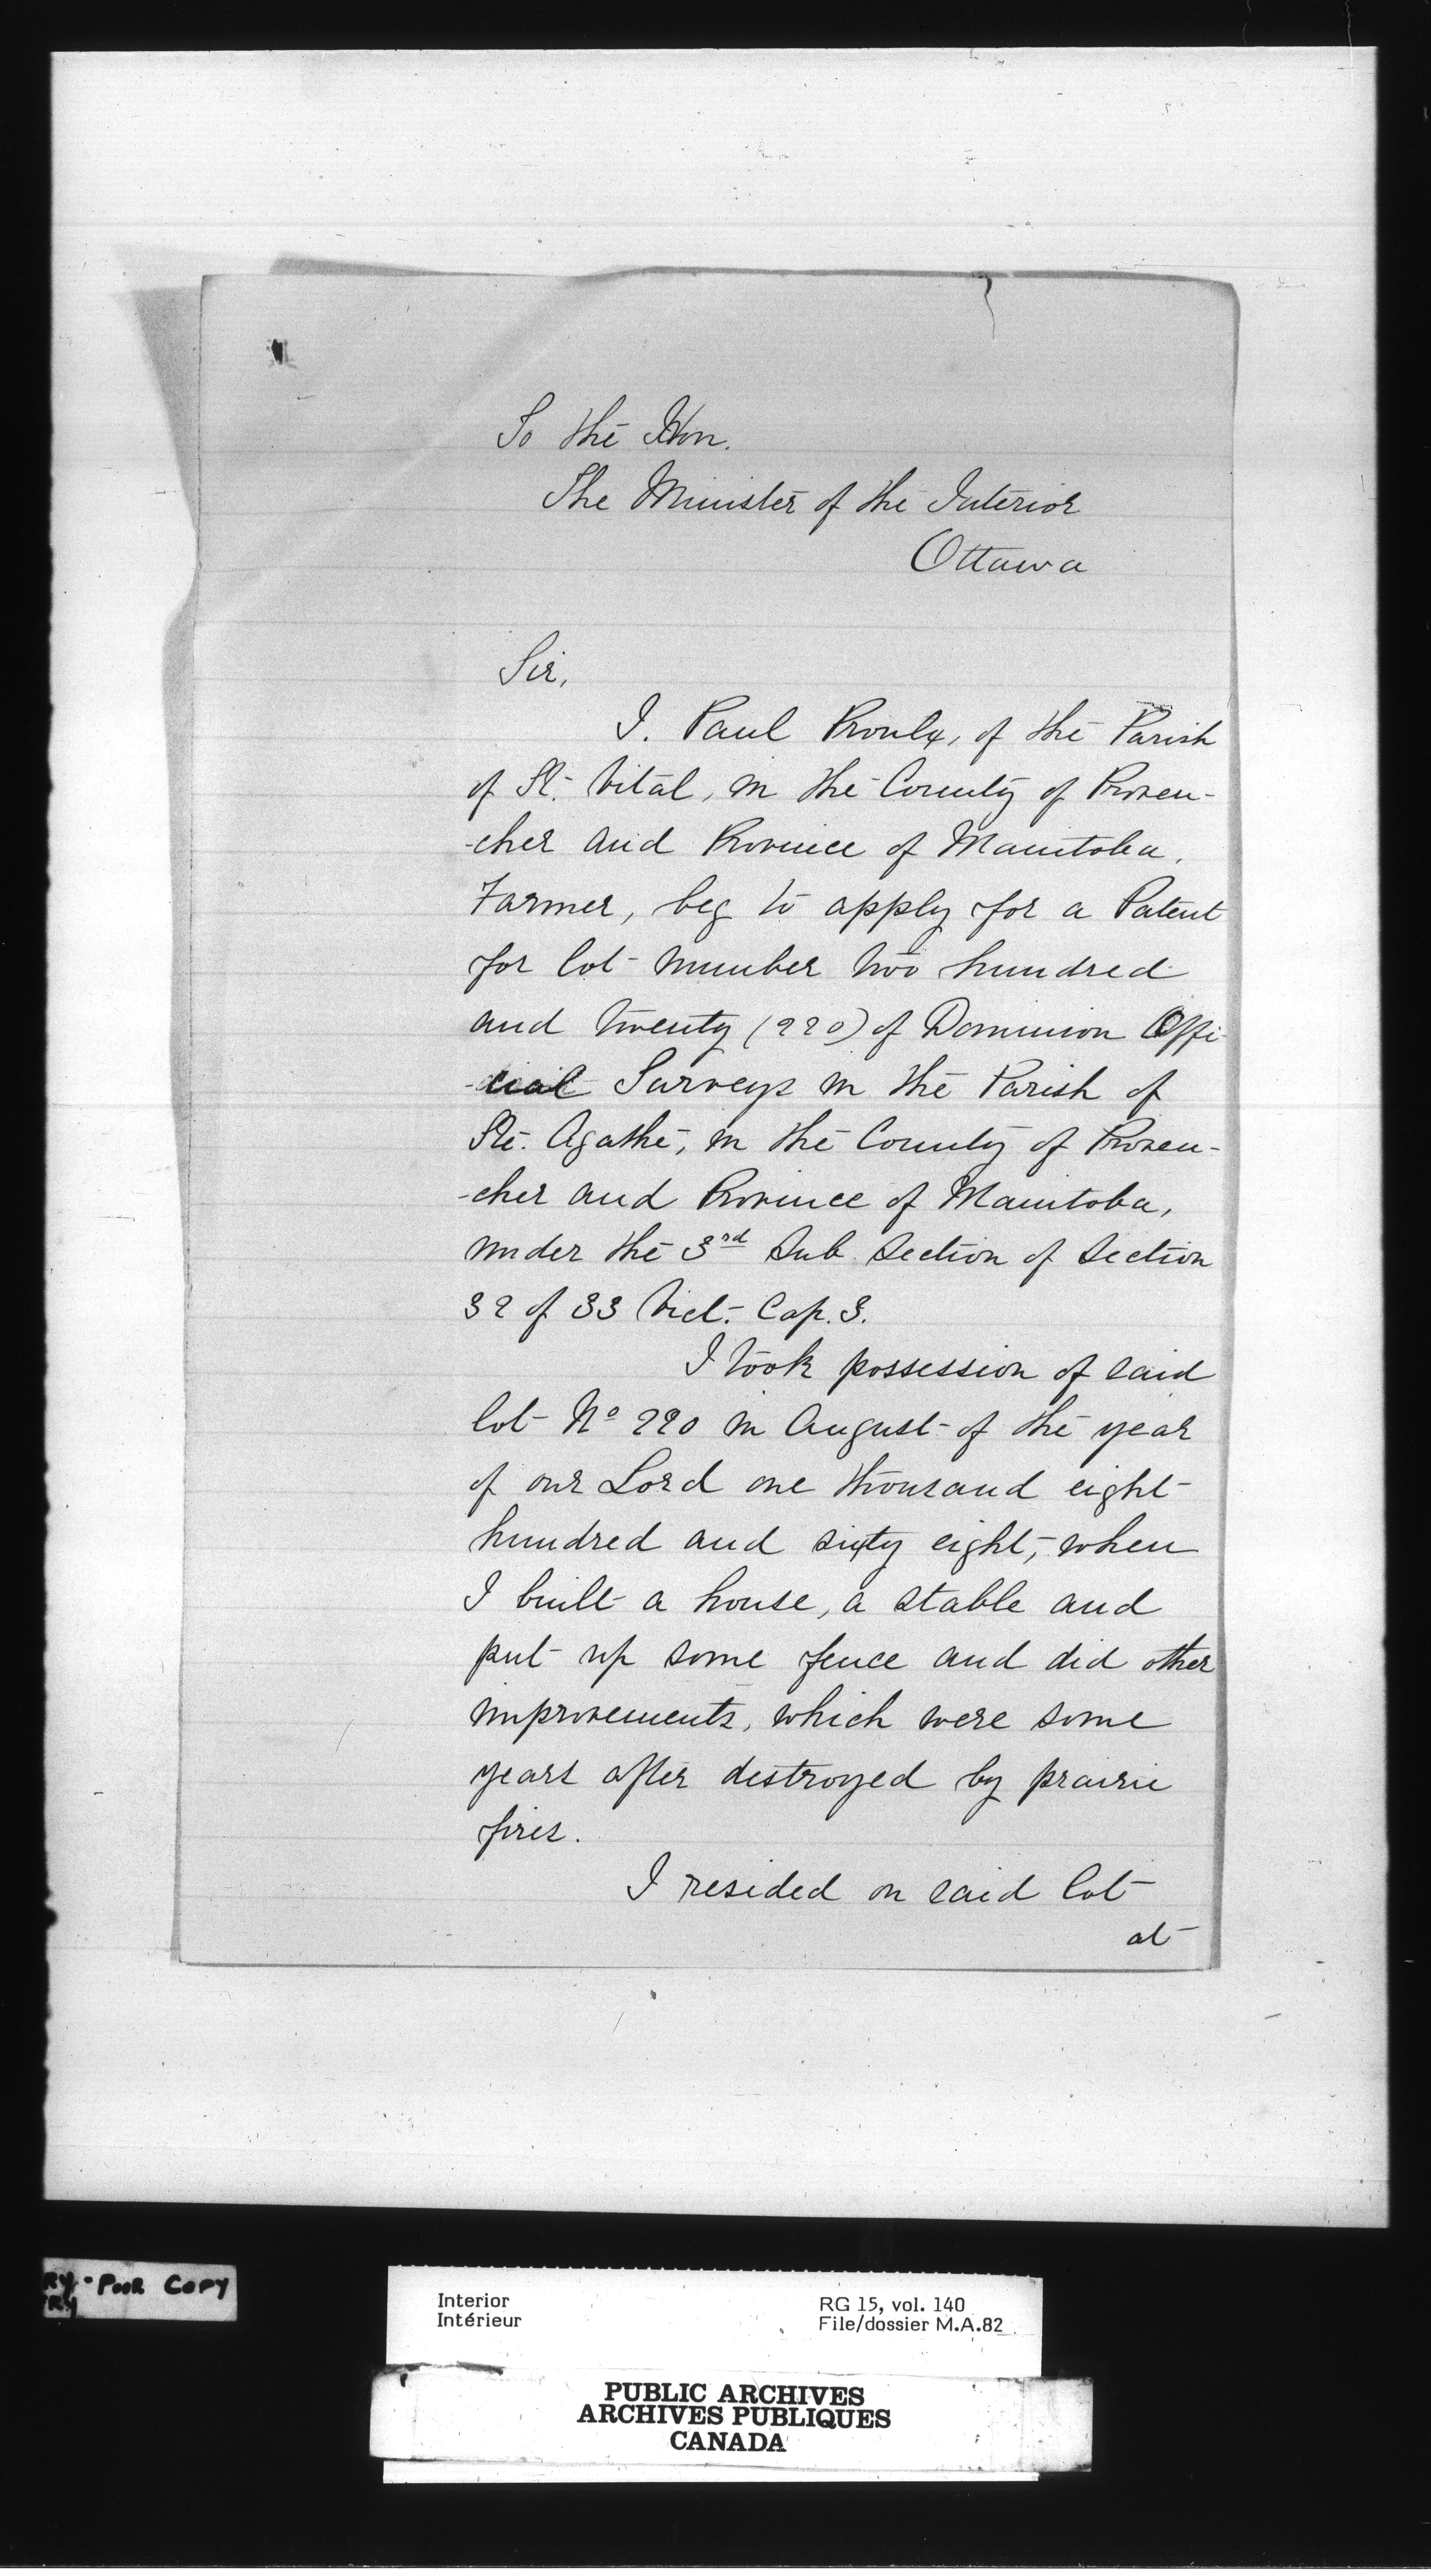 To the Hon.
The Minister of the Interior
Ottawa
Sir,
I. Paul Proulx, of the Parish
of St. Vital, in the County of Proven-
-cher and Province of Manitoba,
Farmer, beg to apply for a Patent
for lot number two hundred
and twenty (220) of Dominion Offi-
-cial Surveys in the Parish of
Ste. Agathe, in the County of Proven-
-cher and Province of Manitoba,
under the 3rd Sub Section of Section
32 of 33 Vict. Cap. 3.
I took possession of said
lot No 220 in August of the year
of our Lord one thousand eight
hundred and sixty eight, when
I built a house, a stable and
put up some fence and did other
improvements, which were some
years after destroyed by prairie
fires.
I resided on said lot
at
RY - POOR COPY
RY
Interior
Intérieur
RG 15, vol. 140
File/dossier M.A.82
PUBLIC ARCHIVES
ARCHIVES PUBLIQUES
CANADA